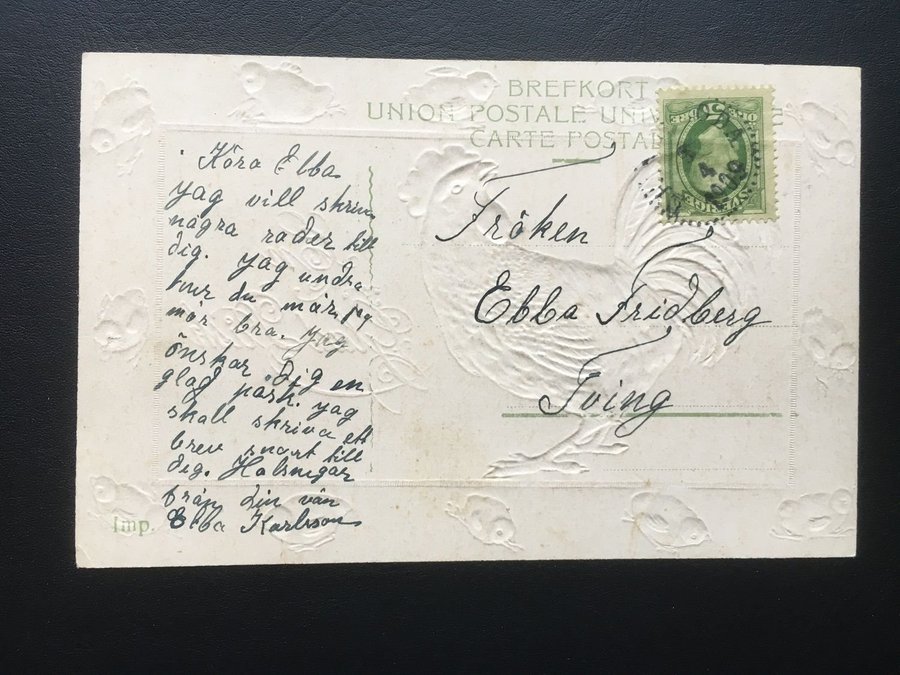 BREFKORT
UNION POSTALE UNIV
CARTE POSTA
Kära Ebba
Jag vill skriva
några rader till
dig. Jag undra
hur du mår, jag
mår bra. Jag
önskar dig en
glad påsk. Jag
skall skriva ett
brev snart till
dig. Hälsnigar
från din vän
Ebba Karlsson
Fröken
Ebba Fridberg
Tving
Imp.